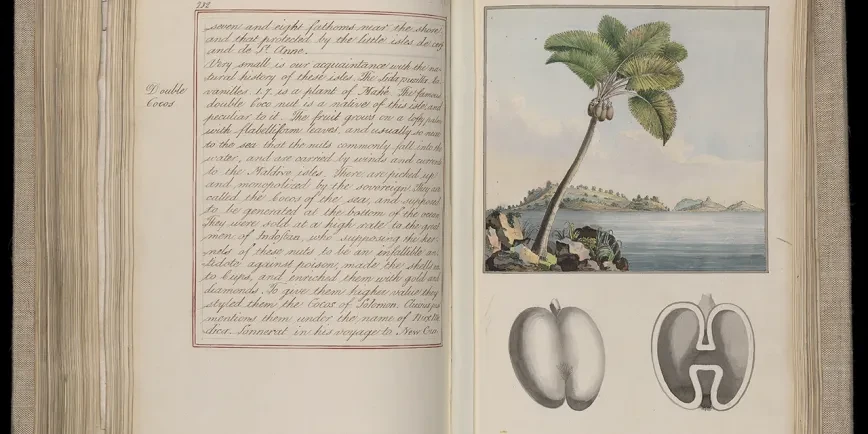 212
Double
Cocos
seven and eight fathoms near the shore
and that protected by the little isles de cerf
and de St. Anne.
Very small is our acquaintance with the na-
tural history of these isles. The
vanilles 1.7. is a plant of Mahé. The famous
double Coco nut is a native of this isle, and
peculiar to it. The fruit grows on a lofty palm
with flabelliform leaves, and usually so near
to the sea that the nuts commonly fall into the
water, and are carried by winds and currents
to the Maldive isles. There are picked up
and monopolized by the sovereign. They are
called the Cocos of the sea, and supposed
to be generated at the bottom of the ocean
They were sold at a high rate to the great
men of Indostan, who supposing the ker-
nels of these nuts to be an infallible an-
tidote against poison, made the shells in
to Cups, and enriched them with gold and
diamonds. To give them higher value they
styled them the Cocos of Solomon.
mentions them under the name of Nux Me
dica. Sonnerat in his voyage to New Gui-